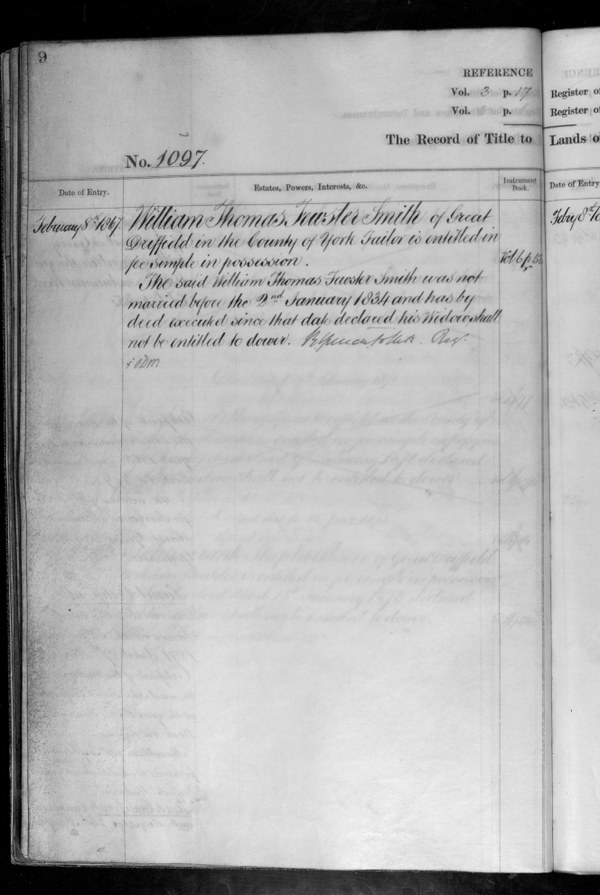 9
REFERENCE
Vol. 3 p. 17
Vol. p.
The Record of Title to
No. 1097.
Date of Entry.
Estates, Powers, Interests, &c.
Instrument
Book.
February 8th 1867
William Thomas Fowster Smith of Great
Driffield in the County of York Tailor is entitled in
fee simple in possession.
Vol 6 p.
The said William Thomas Fowster Smith was not
married before the 2nd January 1834 and has by
deed executed since that date declared his Widow shall
not be entitled to dower. Reg.
Register of
Register of
Lands o
Date of Entry
Feby 8th